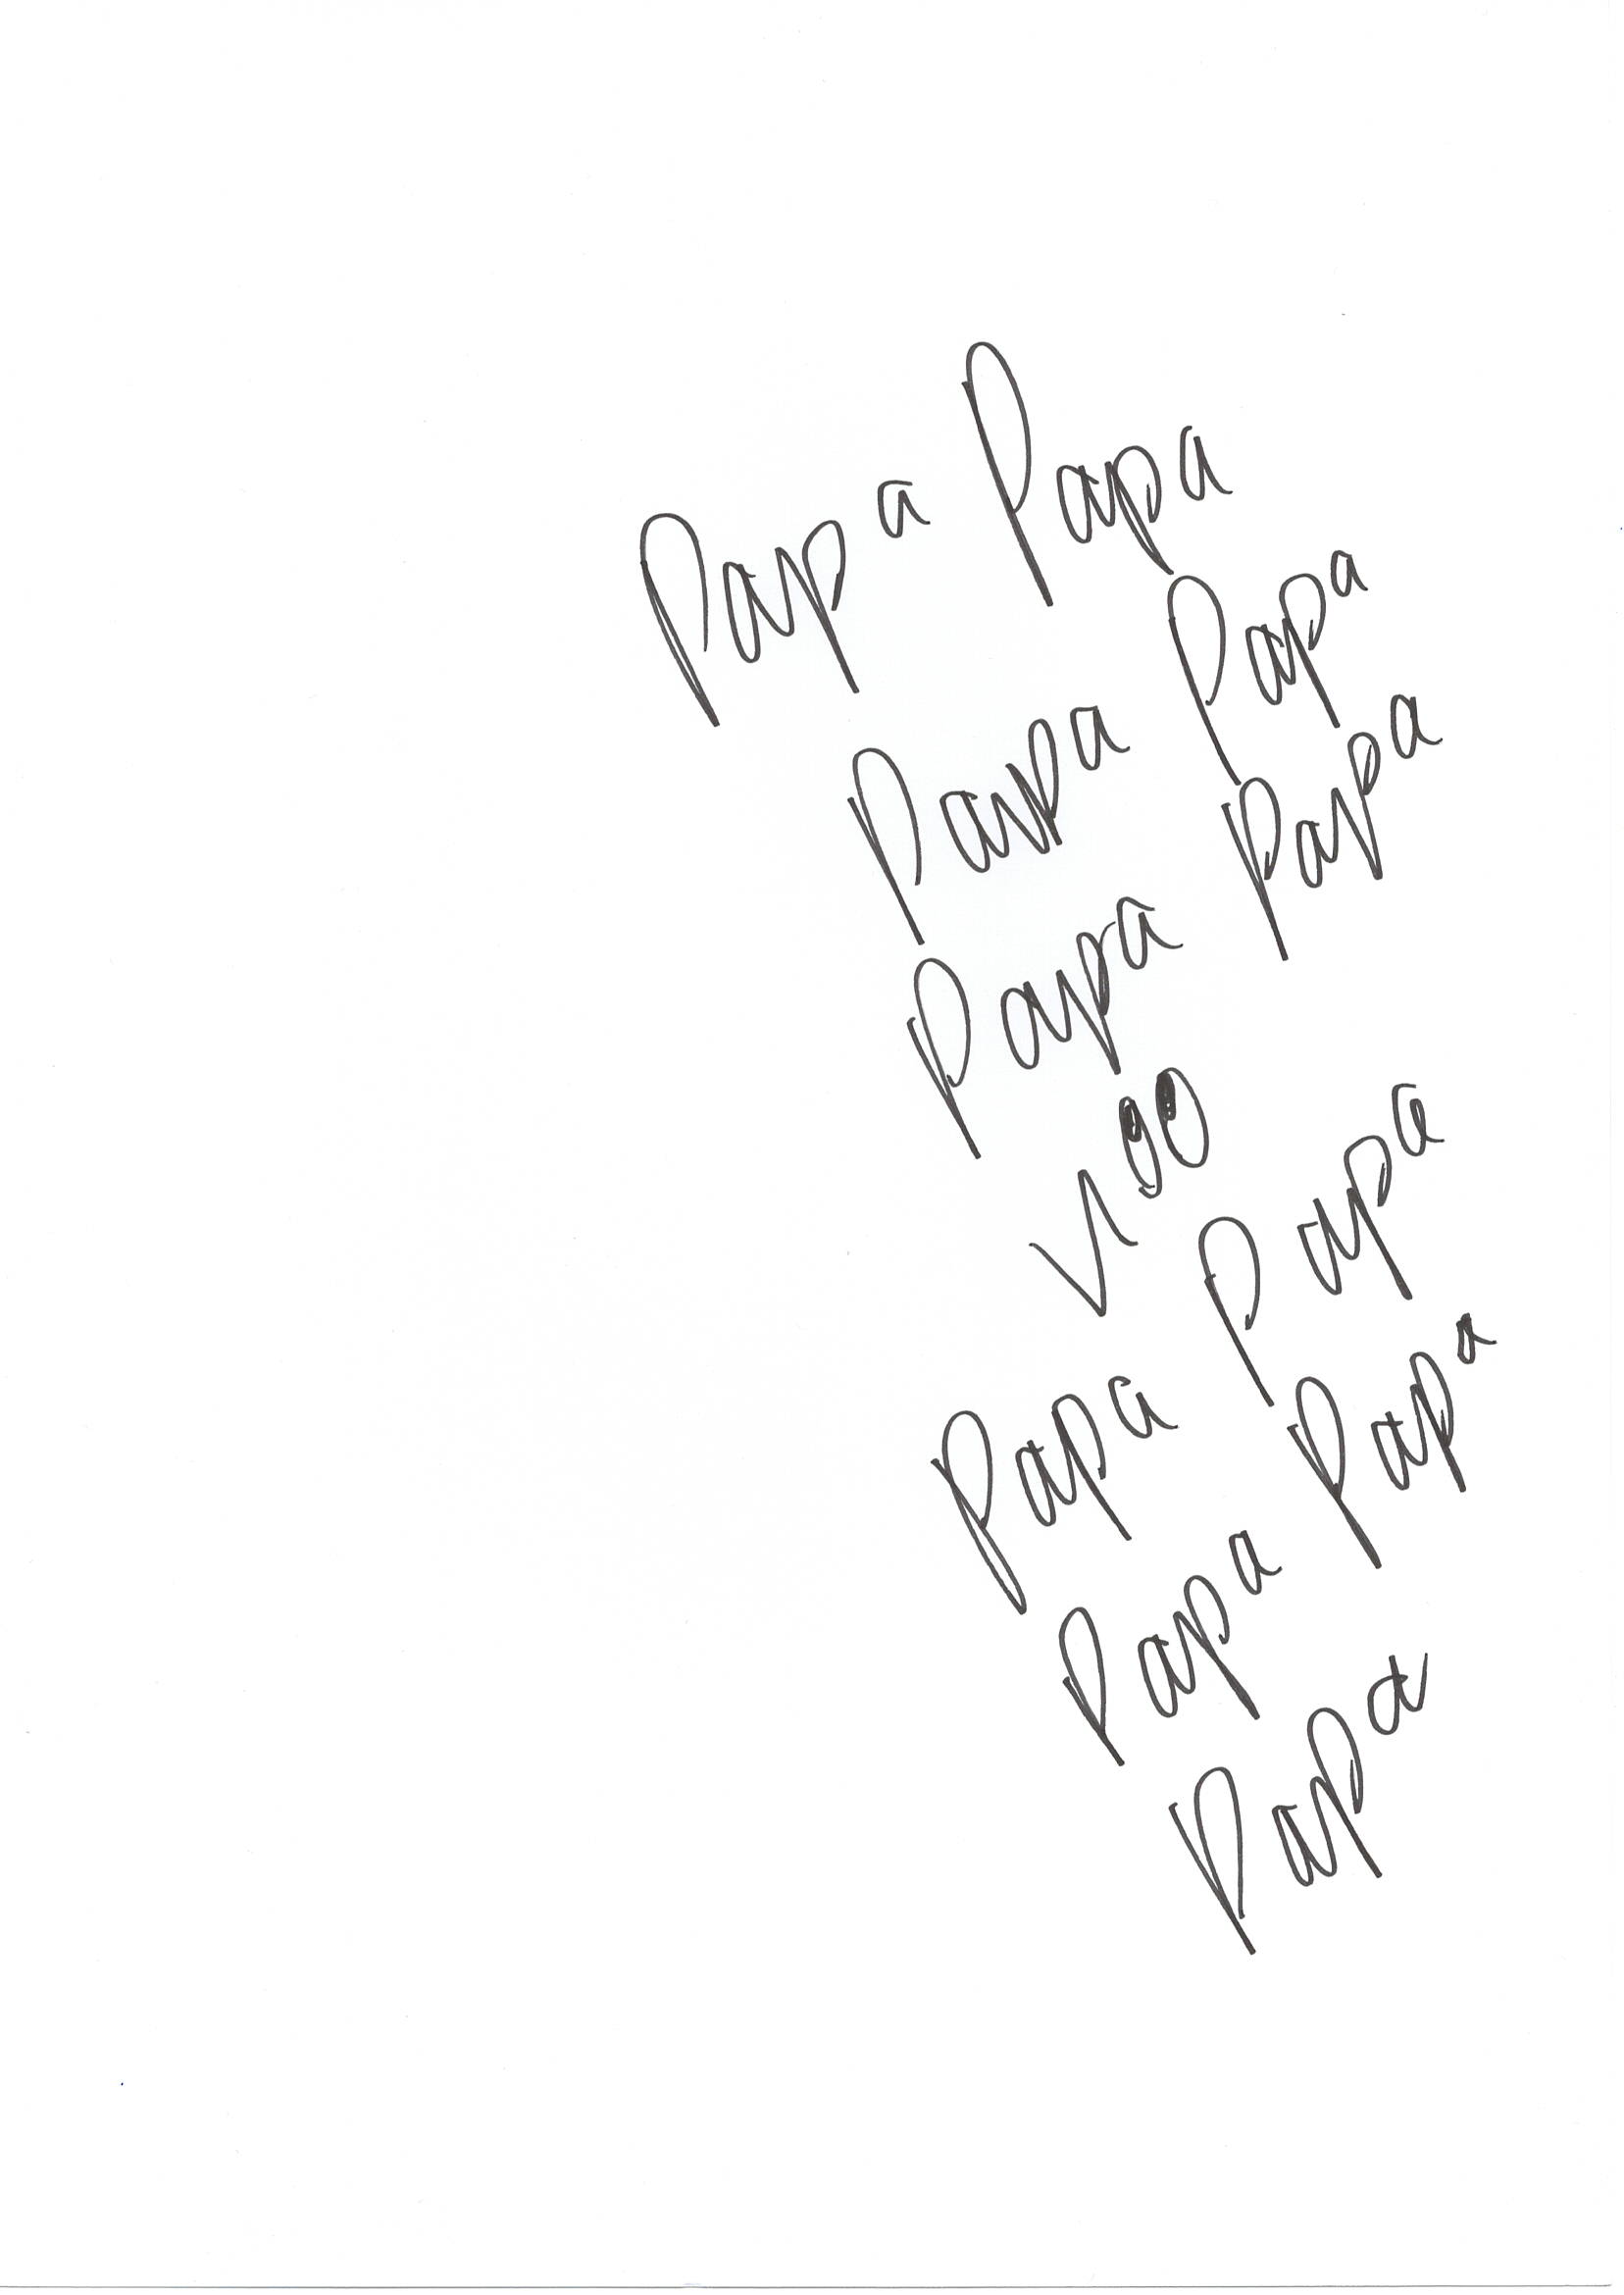 Papa Papa
Papa Papa
Papa Papa
Papa Papa
Papa Papa
Papa